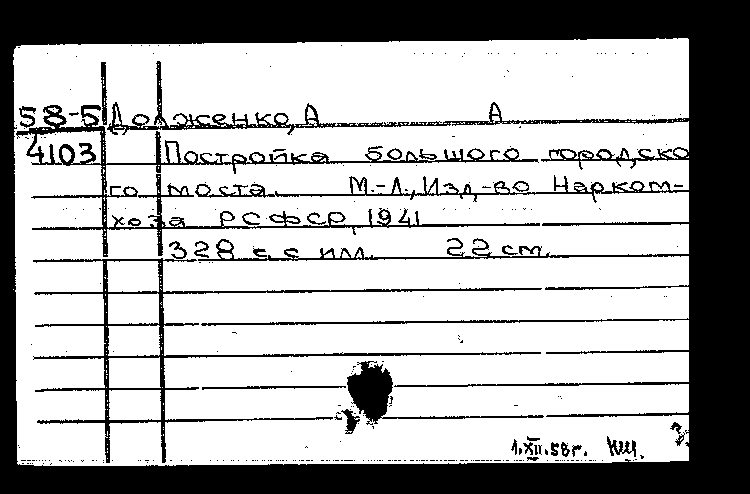 58-5 Долженко, А А
4103 Постройка большого городско
го моста. М.-Л., Изд-во Нарком-
хоза РСФСР, 1941
328 с. с илл. 22 см.
1.XII.58г.